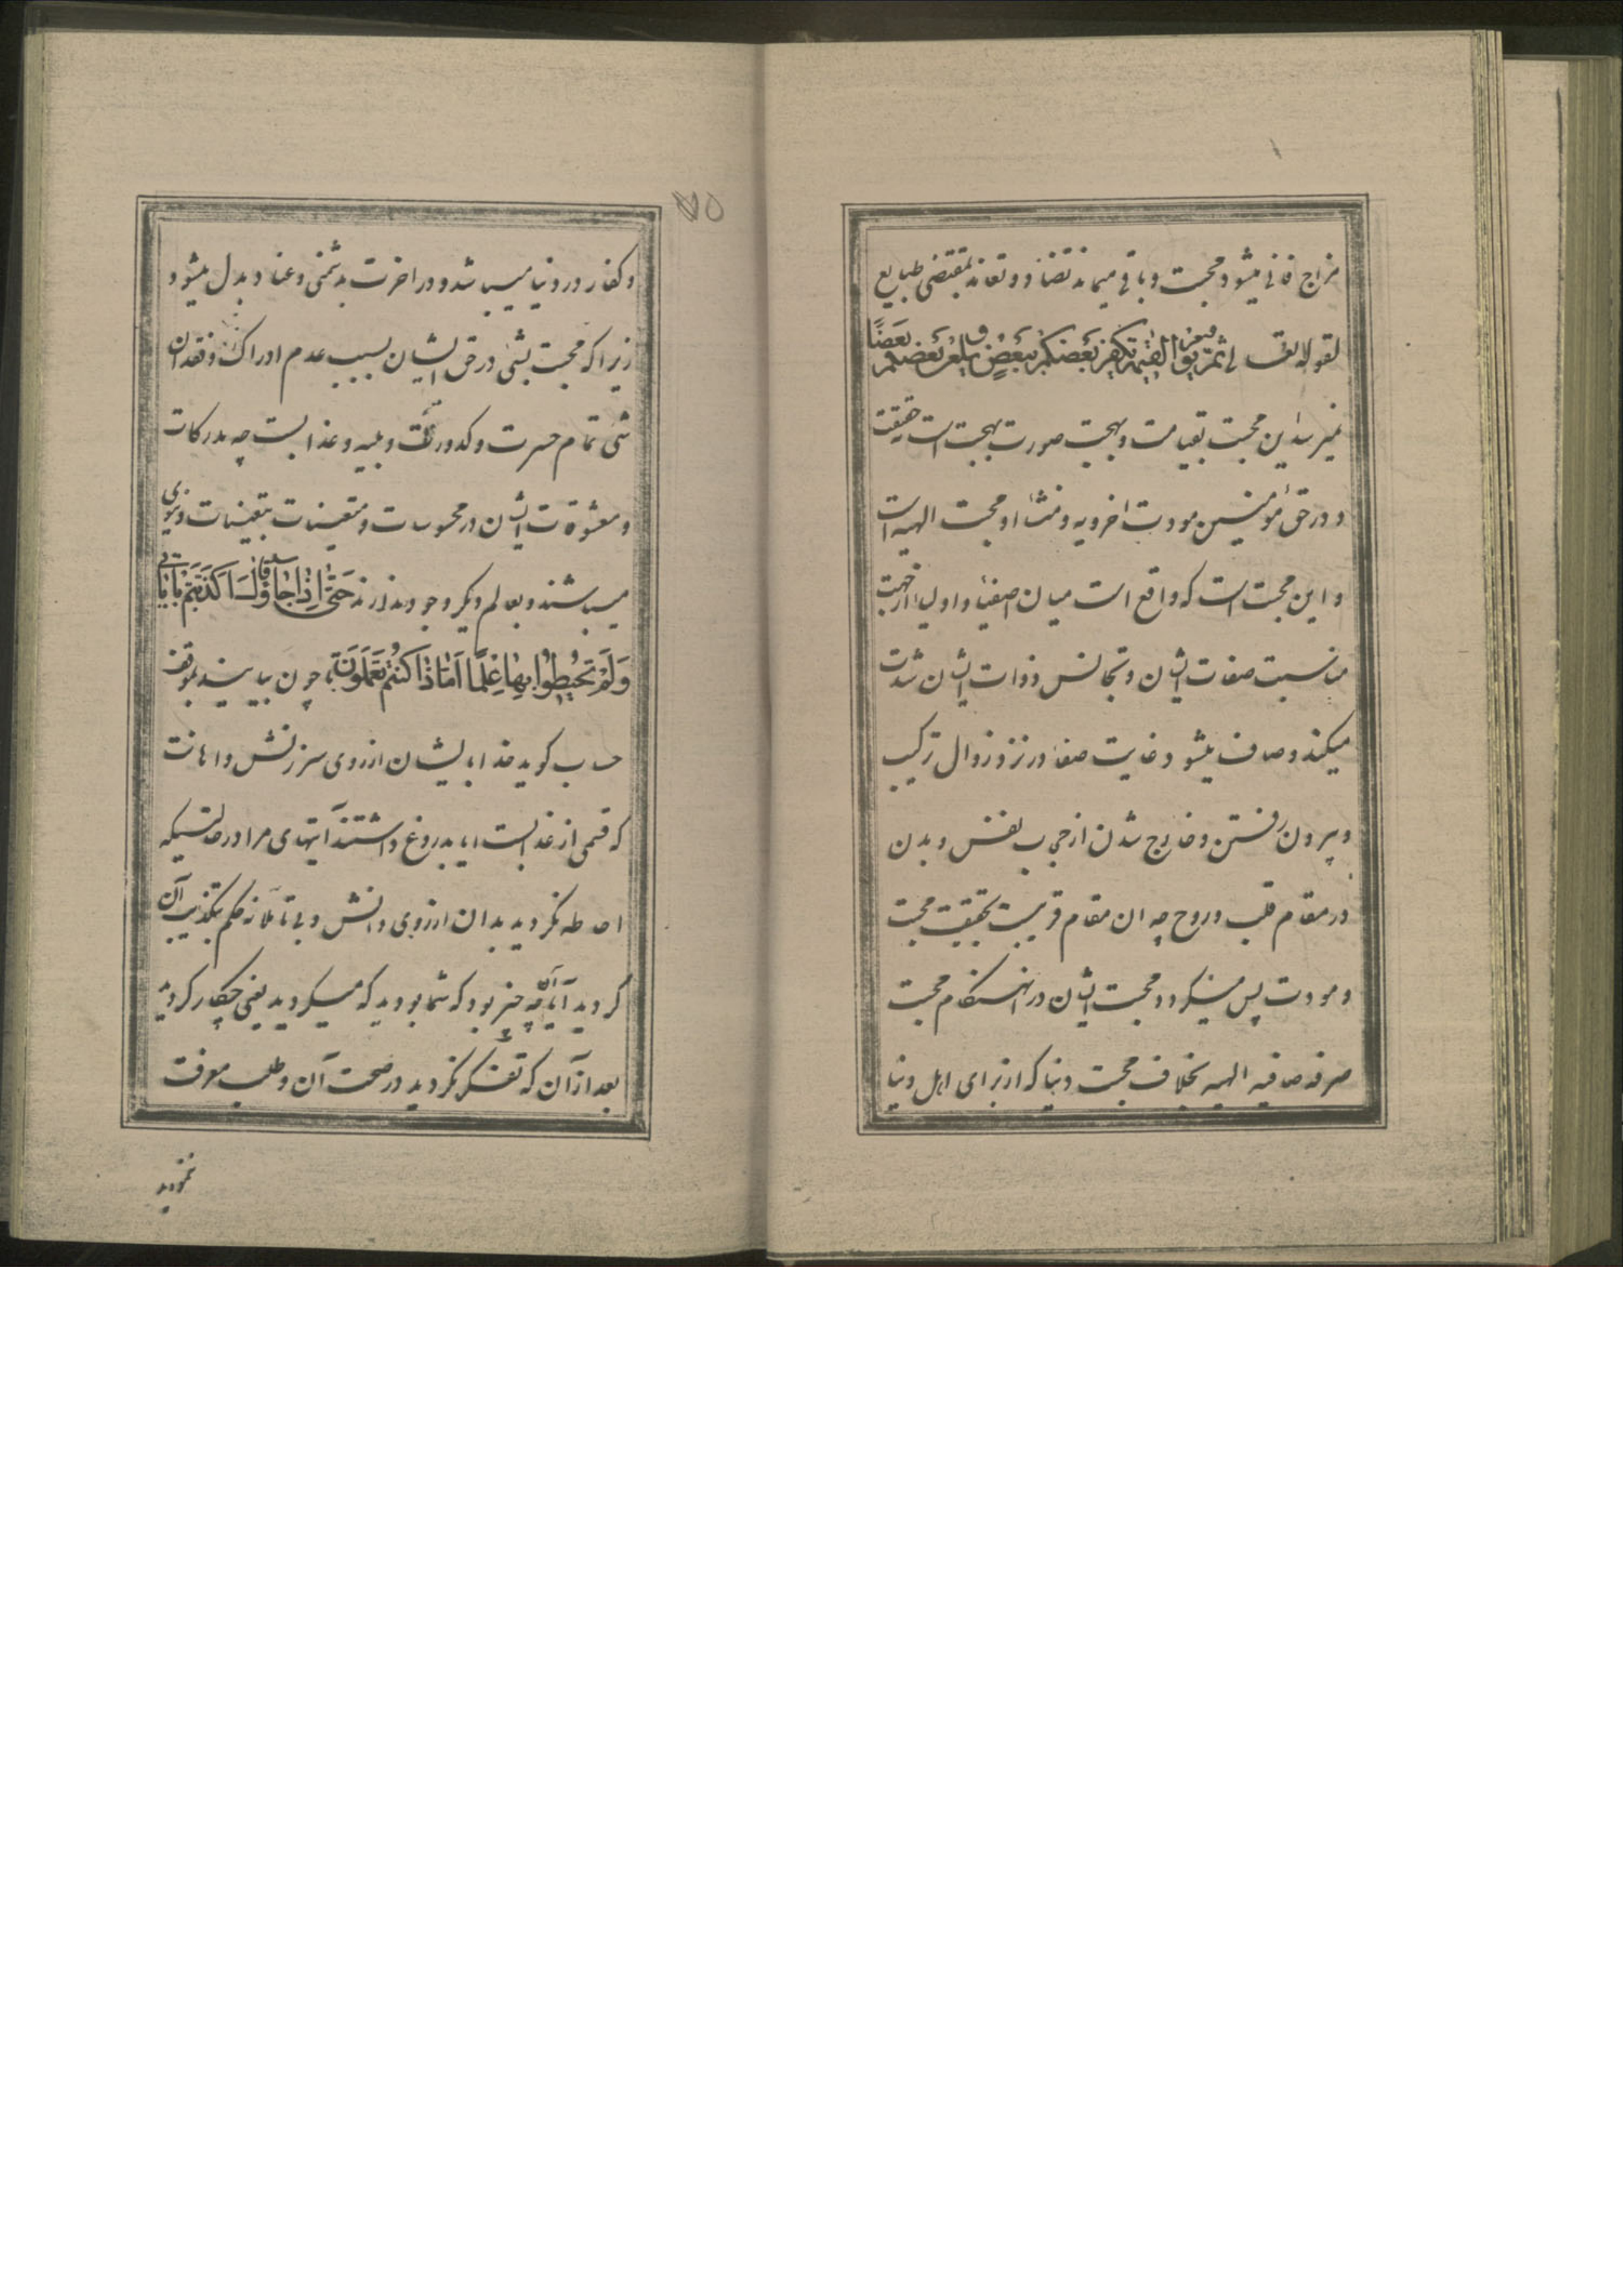 مزاج فانی میشود محبت و باقی میماند تضاد و تعاند بمقتضی طبایع
لقوله تعالی ثم یوم القیمة یکفر بعضکم ببعض و یلعن بعضکم بعضا
نمیرسد این محبت بقیامت و بهجت صورت بهجت است حقیقت
و در حق مؤمنین مودت اخرویه و منشاء او محبت الهیه است
و این محبت است که واقع است میان اصفیا و اولیا از جهت
مناسبت صفات ایشان و تجانس ذوات ایشان شدت
میکند و صاف میشود غایت صفا در نزد زوال ترکیب
و بیرون رفتن و خارج شدن از حجاب نفس و بدن
در مقام قلب و روح چه ان مقام قریبست بحقیقت محبت
و مودت پس میگردد محبت ایشان در انهنگام محبت
صرفه صافیه الهیه بخلاف محبت دنیا که از برای اهل دنیا
۷۵
و کفار در دنیا میباشد و در اخرت بدشمنی و عناد بدل میشود
زیرا که محبت بشئ در حق ایشان بسبب عدم ادراک و فقدان
شئ تمام حسرت و کدورت و بلیه و عذابست چه مدرکات
و معشوقات ایشان در محسوسات و متعینات بتعینات دنیوی
میباشند و بعالم دیگر وجود ندارند حَتَّىٰ اِذَا جَاؤُا قَالَ اَكَذَّبْتُمْ بِآيَاتِي
وَلَمْ تُحِيطُوا بِهَا عِلْمًا اَمَّاذَا كُنْتُمْ تَعْمَلُونَ چون بیایند بموقف
حساب گوید خدا بایشان از روی سرزنش و اهانت
که قسمی از عذابست ایا بدروغ داشتند آیتهای مرا در حالتیکه
احاطه نکردید بدان از روی دانش و بی تاملانه حکم بتکذیب آن
کردید آیا چه چیز بود که شما بودید که میکردید یعنی چکار کردید
بعد از آن که تفکر نکردید در صحت آن و طلب معرفت
ننمودید